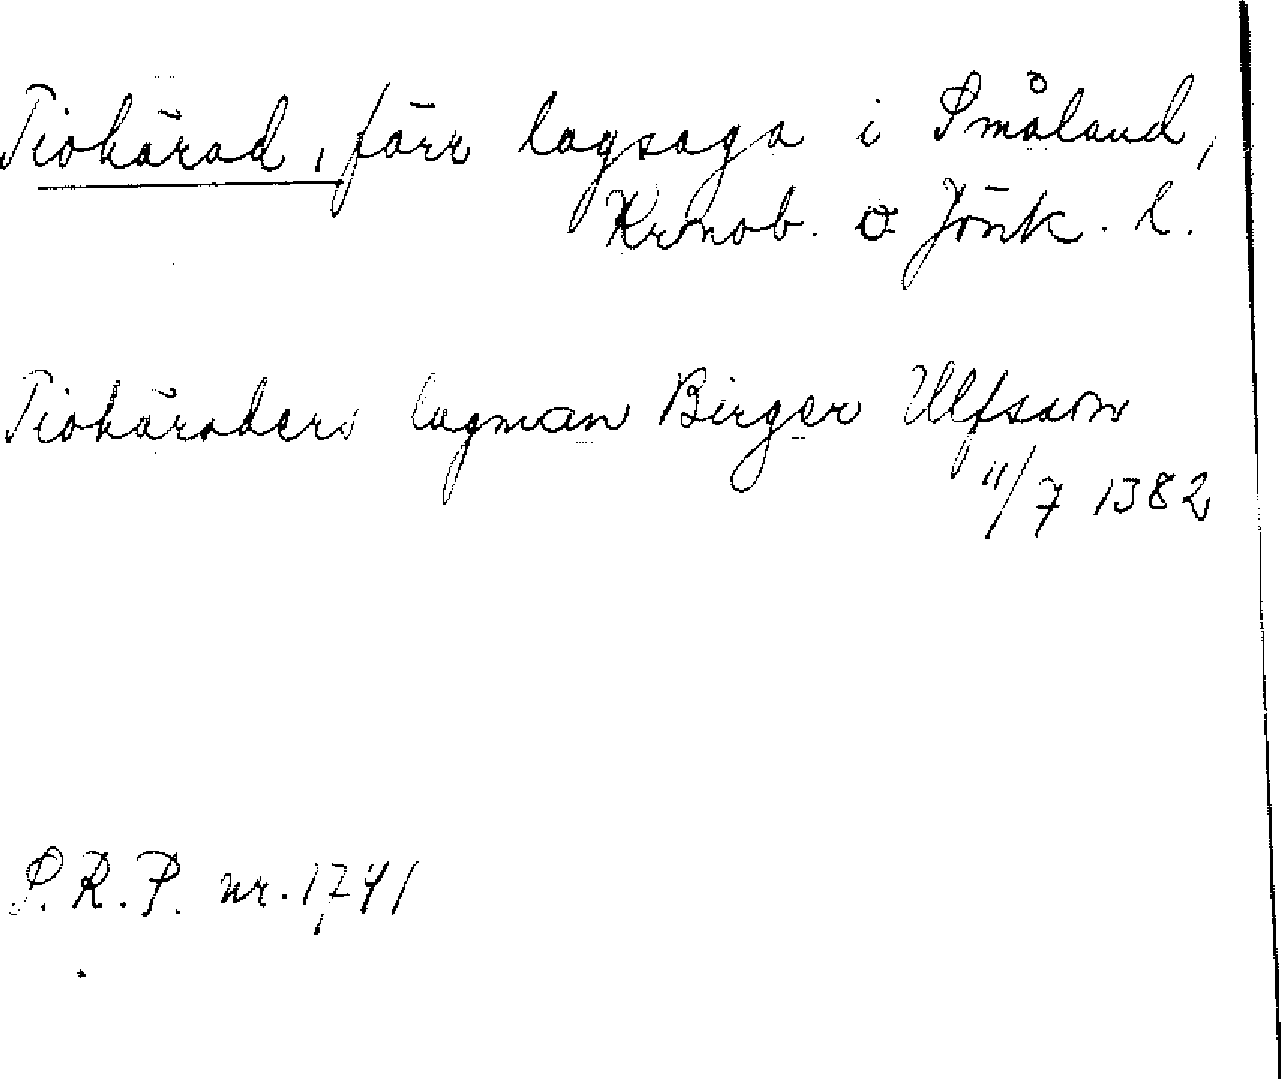 Tiohärad, förr lagsaga i Småland,
Kronob. o Jönk. l.
Tiohäraders lagman Birger Ulfsson
11/7 1382
S.R.P. nr. 1741